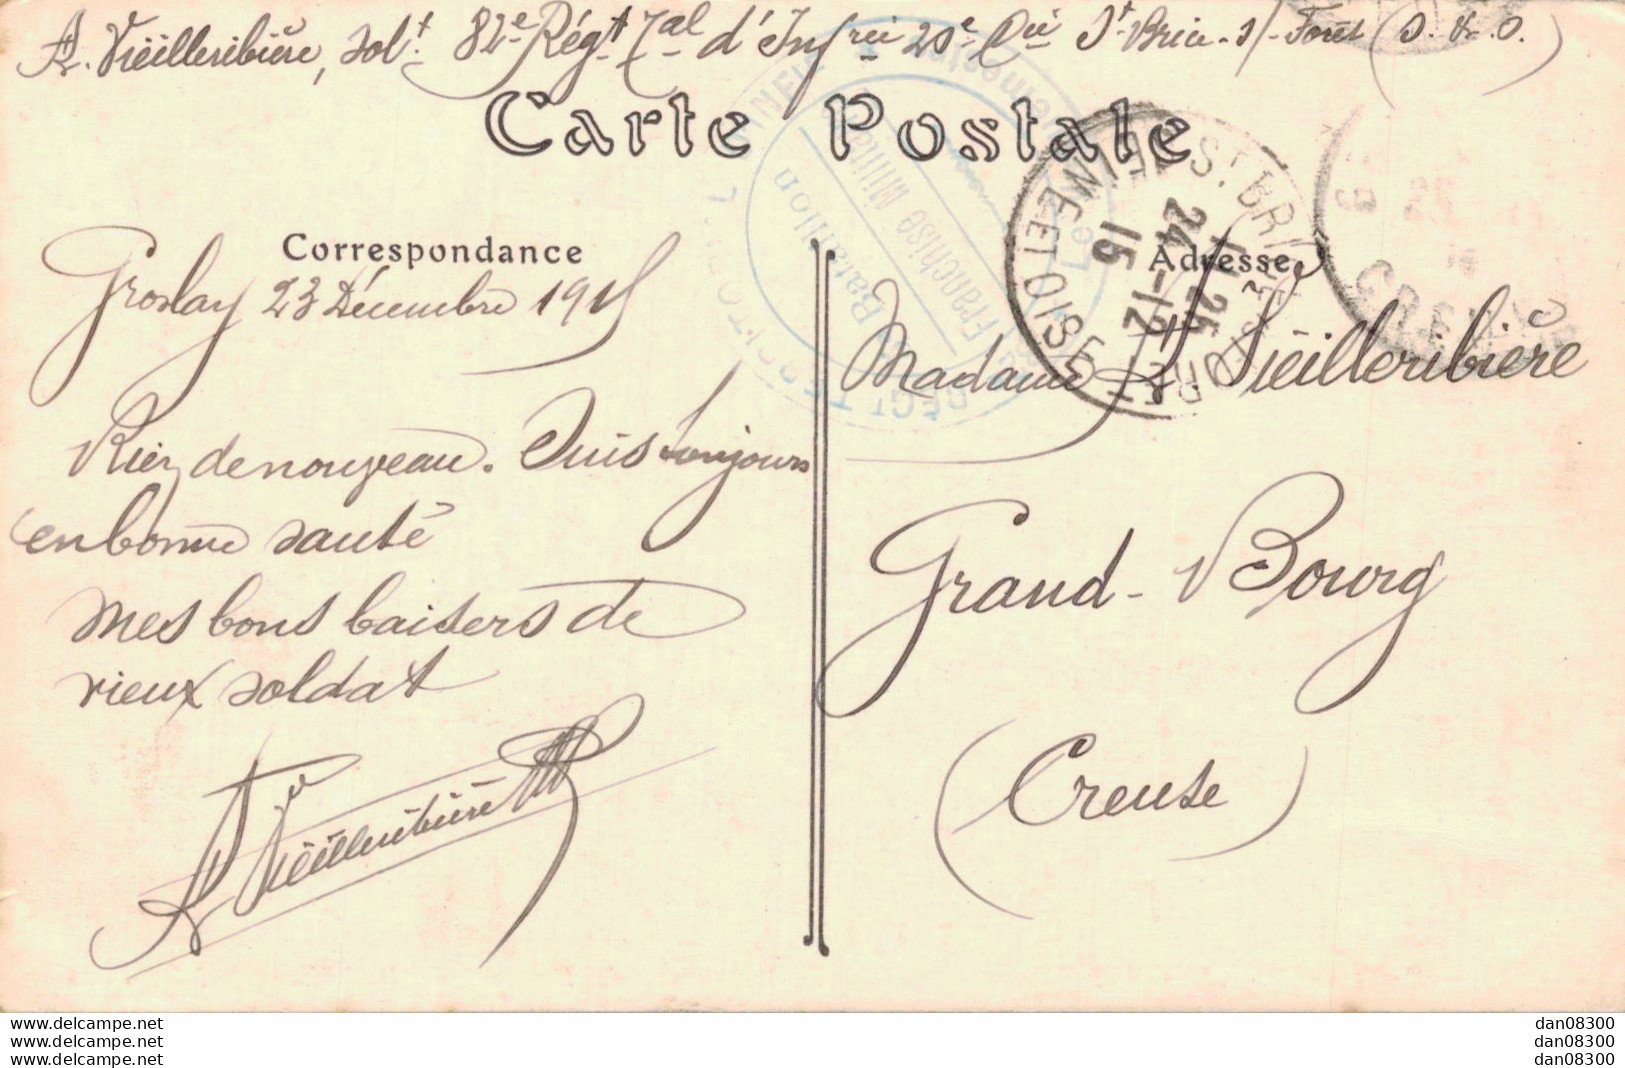 A. Vieilleribière, solt. 82e Régt Tal d'Infrie 20e Cie St Brice-s/-Forêt (S. & O.)
Carte Postale
Franchise Militaire
Bataillon
ST BRICE
24 -12
15
SEINE ET OISE
Correspondance
Adresse
Groslay 23 Décembre 1915
Madame A. Vieilleribière
Rien de nouveau. Suis toujours
en bonne santé
Mes bons baisers de
vieux soldat
A Vieilleribière
Grand-Bourg
(Creuse)
www.delcampe.net
www.delcampe.net
www.delcampe.net
dan08300
dan08300
dan08300